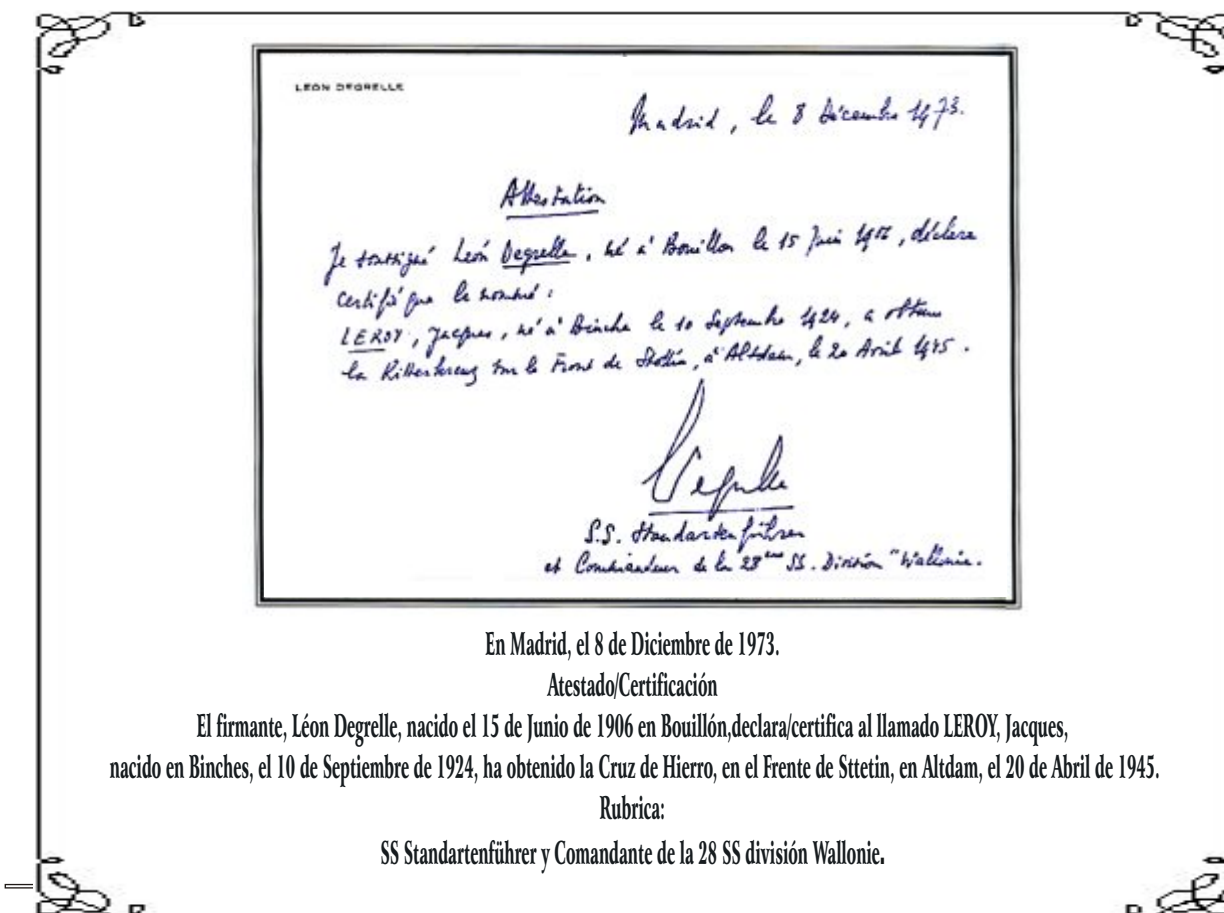 LEON DEGRELLE
Madrid, le 8 Décembre 1973.
Attestation
Je soussigné León Degrelle, né à Bouillon le 15 Juin 1906, déclare
certifié que le nommé :
LEROY, Jacques, né à Binche le 10 Septembre 1924, a obtenu
la Ritterkreuz sur le Front de Stettin, à Altdam, le 20 Avril 1945.
Degrelle
S.S. Standartenführer
et Commandeur de la 28eme SS. Division "Wallonie.
En Madrid, el 8 de Diciembre de 1973.
Atestado/Certificación
El firmante, Léon Degrelle, nacido el 15 de Junio de 1906 en Bouillón,declara/certifica al llamado LEROY, Jacques,
nacido en Binches, el 10 de Septiembre de 1924, ha obtenido la Cruz de Hierro, en el Frente de Sttetin, en Altdam, el 20 de Abril de 1945.
Rubrica:
SS Standartenführer y Comandante de la 28 SS división Wallonie.